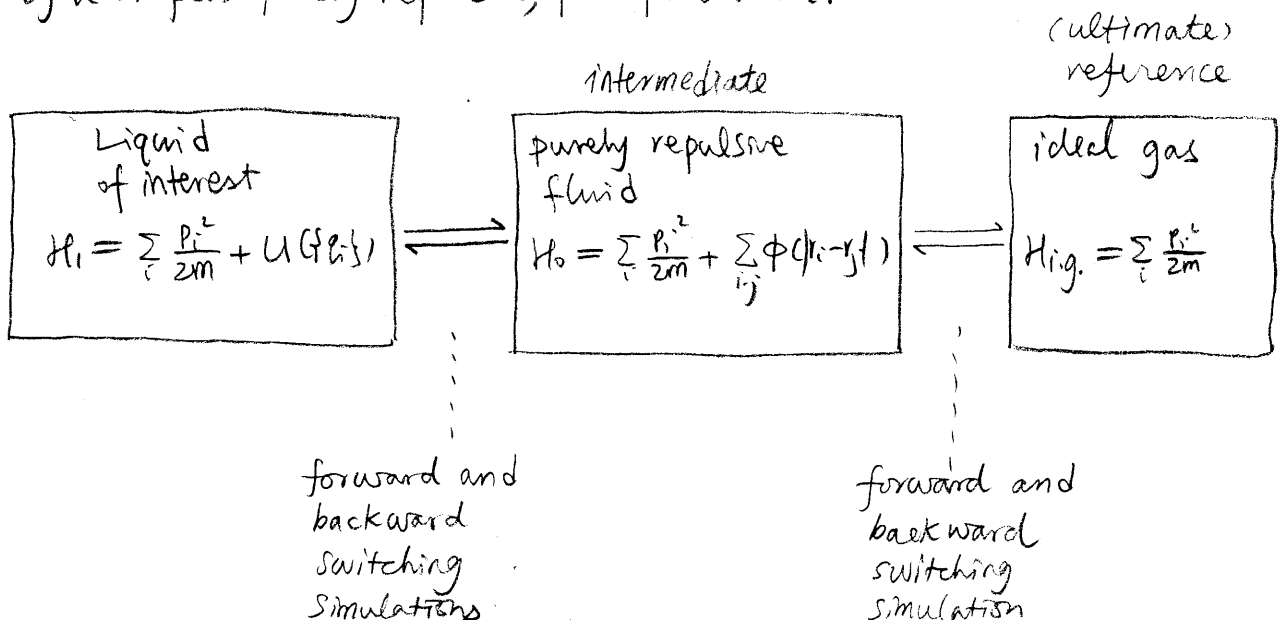 (ultimate)
reference
intermediate
Liquid
of interest
H₁ = Σᵢ pᵢ²/2m + U({qᵢ})
purely repulsive
fluid
H₀ = Σᵢ pᵢ²/2m + Σᵢ₋ⱼ ϕ(|rᵢ-rⱼ|)
ideal gas
Hi.g. = Σᵢ pᵢ²/2m
forward and
backward
switching
simulations
forward and
backward
switching
simulation